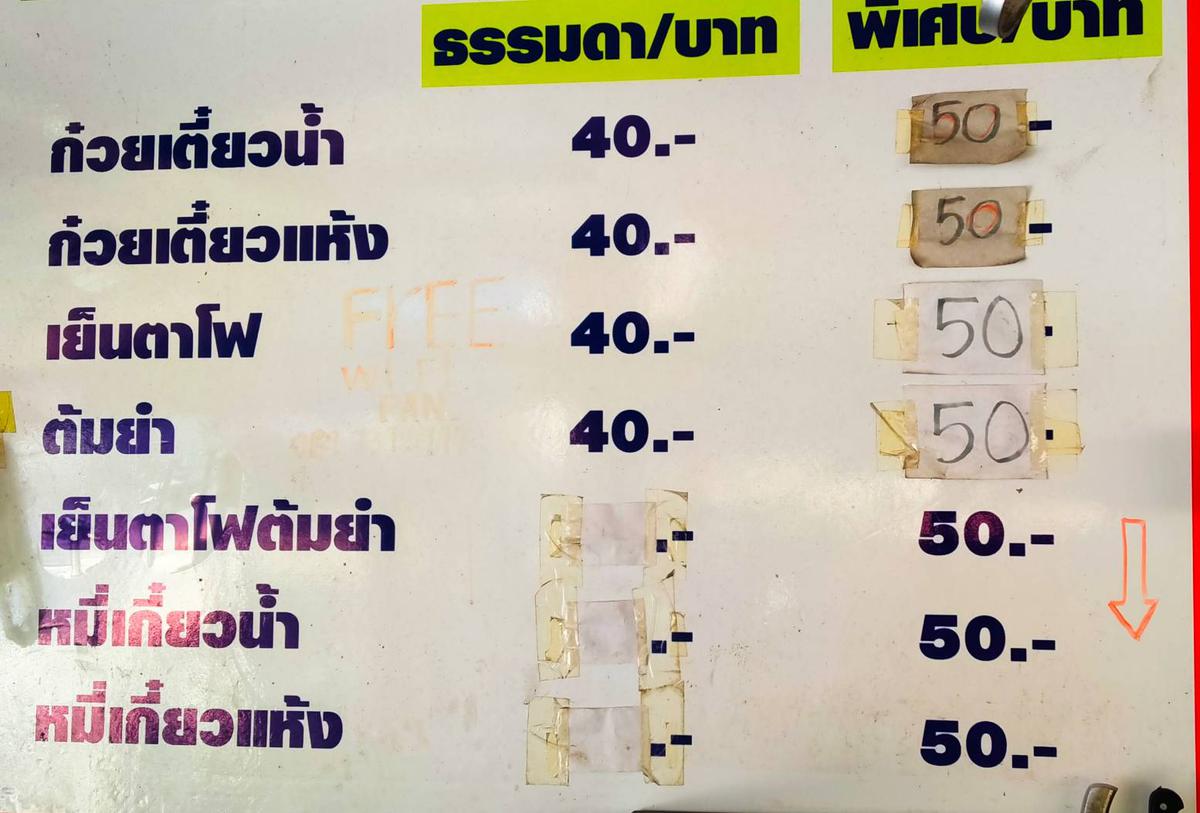 ธรรมดา/บาท พิเศษ/บาท
ก๋วยเตี๋ยวน้ำ 40.- 50 -
ก๋วยเตี๋ยวแห้ง 40.- 50 -
เย็นตาโฟ 40.- 50 -
FREE
ต้มยำ 40.- 50 -
เย็นตาโฟต้มยำ .- 50.-
หมี่เกี๋ยวน้ำ .- 50.-
หมี่เกี๋ยวแห้ง .- 50.-